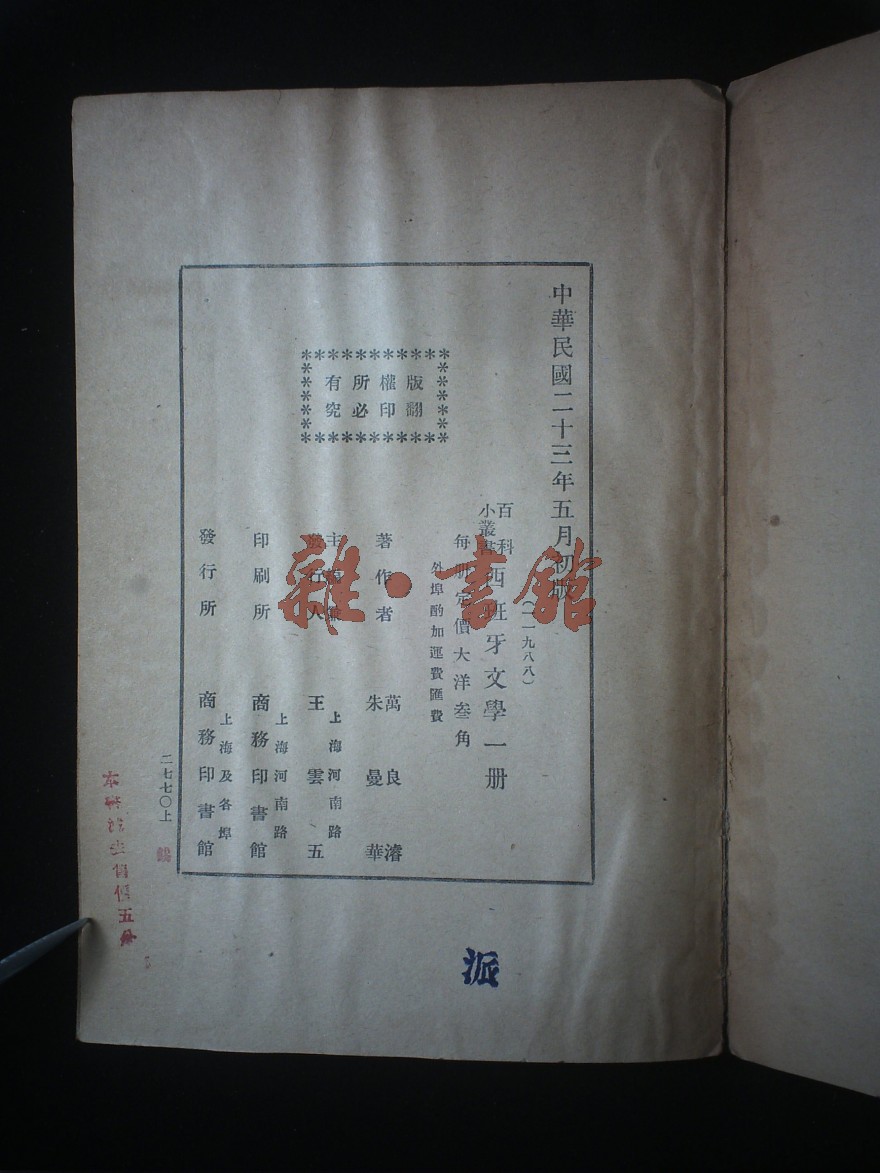 中華民國二十三年五月初版
(一一九八八)
百科小叢書
西班牙文學一册
每册定價大洋叁角
外埠酌加運費匯費
版權所有
翻印必究
著作者
萬良濬
朱曼華
發行人
上海河南路
王雲五
印刷所
上海河南路
商務印書館
發行所
上海及各埠
商務印書館
二七七〇上
派
雜·書館